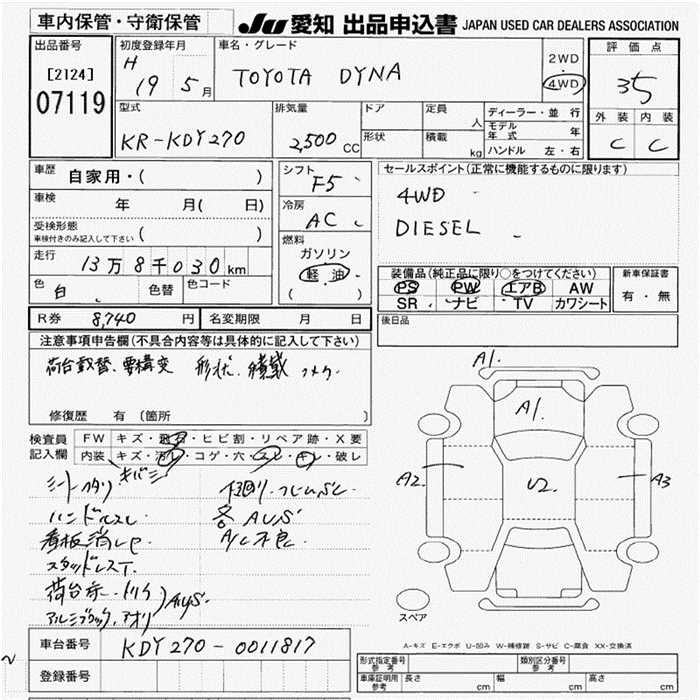 車内保管・守衛保管
JU 愛知 出品申込書 JAPAN USED CAR DEALERS ASSOCIATION
出品番号
[2124]
07119
初度登録年月
H 19 5月
車名・グレード
TOYOTA DYNA
2WD
・
4WD
評価点
3.5
外装 内装
C C
型式
KR-KDY270
排気量
2,500 CC
ドア
形状
定員 人
積載 kg
ディーラー・並行
モデル年式 年
ハンドル 左・右
車歴 自家用・( )
車検 年 月( 日)
受検形態
車検付きのみ記入して下さい ( )
走行
13万8千030km
色 白 色替 色コード
シフト
F5
冷房
AC
燃料
ガソリン
軽油
( )
セールスポイント(正常に機能するものに限ります)
4WD
DIESEL
装備品(純正品に限り○をつけてください)
PS PW エアB AW
SR ナビ TV カワシート
新車保証書
有・無
R券 8,740円 名変期限 月 日
後日品
注意事項申告欄(不具合内容等は具体的に記入して下さい)
荷台載替、要構変 形状、積載
修復歴 有(箇所
検査員記入欄
FW キズ・飛石・ヒビ割・リペア跡・X要
内装 キズ・汚レ・コゲ・穴・スレ・キレ・破レ
キバミ
シートヘタリ
ハンドルスレ
看板消しP
スタッドレスT.
下廻り・フレームSC
各AUS
A/C不良
A1.
A1.
A2.
U2.
A3
スペア
A-キズ E-エクボ U-凹み W-補修跡 S-サビ C-腐食 XX-交換済
車台番号 KDY270-0011817
登録番号
形式指定番号 参考
類別区分番号 参考
車庫証明用 参考 長さ cm 幅 cm 高さ cm